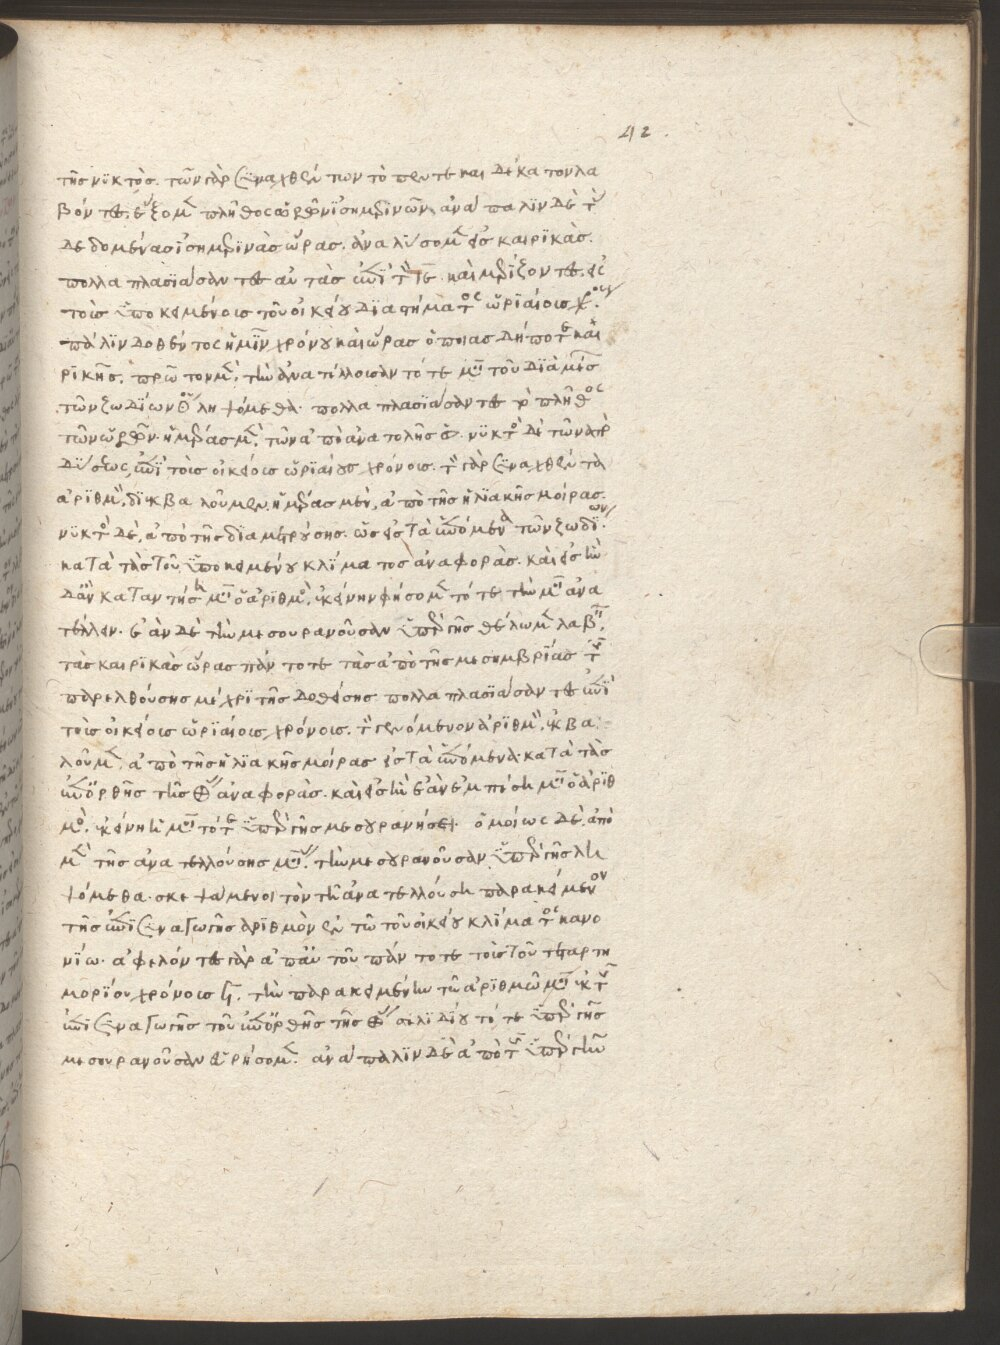 τῆς νυκτὸς. τῶν γὰρ συναχθέντων τὸ πεντεκαιδέκατον λα
βόντες, ἕξομεν πλῆθος ὡρῶν ἰσημερινῶν. ἀνάπαλιν δὲ τὰς
δεδομένας ἰσημερινὰς ὥρας. ἀναλύσομεν εἰς καιρικὰς.
πολλαπλασιάσαντες αὐτὰς ἐπὶ τὸν ιε. καὶ μερίζοντες. εἰς
τοὺς ὑποκειμένους τοῦ οἰκείου διαστήματος ὡριαίους χρόνους.
πάλιν δοθέντος ἡμῖν χρόνου καὶ ὥρας ὁποιασδήποτε και
ρικῆς. πρῶτον μὲν, τὴν ἀνατέλλουσαν τότε μοῖραν τοῦ διὰ μέσων
τῶν ζωδίων ληψόμεθα. πολλαπλασιάσαντες τὸ πλῆθος
τῶν ὡρῶν. ἡμέρας μὲν, τῶν ἀπὸ ἀνατολῆς ἡλίου. νυκτὸς δὲ τῶν ἀπὸ
δύσεως, ἐπὶ τοὺς οἰκείους ὡριαίους χρόνους. τὸν γὰρ συναχθέντα
ἀριθμὸν, διεκβαλοῦμεν, ἡμέρας μὲν, ἀπὸ τῆς ἡλιακῆς μοίρας.
νυκτὸς δὲ, ἀπὸ τῆς διαμετρούσης. ὡς εἰς τὰ ἑπόμενα τῶν ζωδίων.
κατὰ τὰς τοῦ ὑποκειμένου κλίματος ἀναφοράς. καὶ εἰς ἣν
δἂν καταντήσῃ μοῖραν ὁ ἀριθμὸς, ἐκείνην φήσομεν τότε τὴν μοῖραν ἀνα
τέλλειν. ἐὰν δὲ τὴν μεσουρανοῦσαν ὑπὲρ γῆς θέλωμεν λαβεῖν,
τὰς καιρικὰς ὥρας πάντοτε τὰς ἀπὸ τῆς μεσημβρίας τῆς
παρελθούσης μέχρι τῆς δοθείσης πολλαπλασιάσαντες ἐπὶ
τοὺς οἰκείους ὡριαίους χρόνους. τὸν γενόμενον ἀριθμὸν, ἐκβα
λοῦμεν, ἀπὸ τῆς ἡλιακῆς μοίρας εἰς τὰ ἑπόμενα. κατὰ τὰς
ἐπ' ὀρθῆς τῆς σφαίρας ἀναφοράς. καὶ εἰς ἣν ἐὰν ἐμπέσῃ μοῖραν ὁ ἀριθ
μὸς, ἐκείνη ἡ μοῖρα τότε ὑπὲρ γῆς μεσουρανήσει. ὁμοίως δὲ, ἀπὸ
μὲν τῆς ἀνατελλούσης μοίρας. τὴν μεσουρανοῦσαν ὑπὲρ γῆς λη
ψόμεθα. σκεψάμενοι τὸν τῇ ἀνατελλούσῃ παρακείμενον
τῆς ἐπισυναγωγῆς ἀριθμὸν ἐν τῷ τοῦ οἰκείου κλίματος κανο
νίῳ. ἀφελόντες γὰρ ἀπ' αὐτοῦ πάντοτε τοὺς τοῦ τεταρτη
μορίου χρόνους Ϟ, τὴν παρακειμένην τῷ ἀριθμῷ μοῖραν ἐκ τῆς
ἐπισυναγωγῆς τοῦ ἐπ' ὀρθῆς τῆς σφαίρας σελιδίου τότε ὑπὲρ γῆς
μεσουρανοῦσαν εὑρήσομεν. ἀνάπαλιν δὲ ἀπὸ τῆς ὑπὲρ γῆν